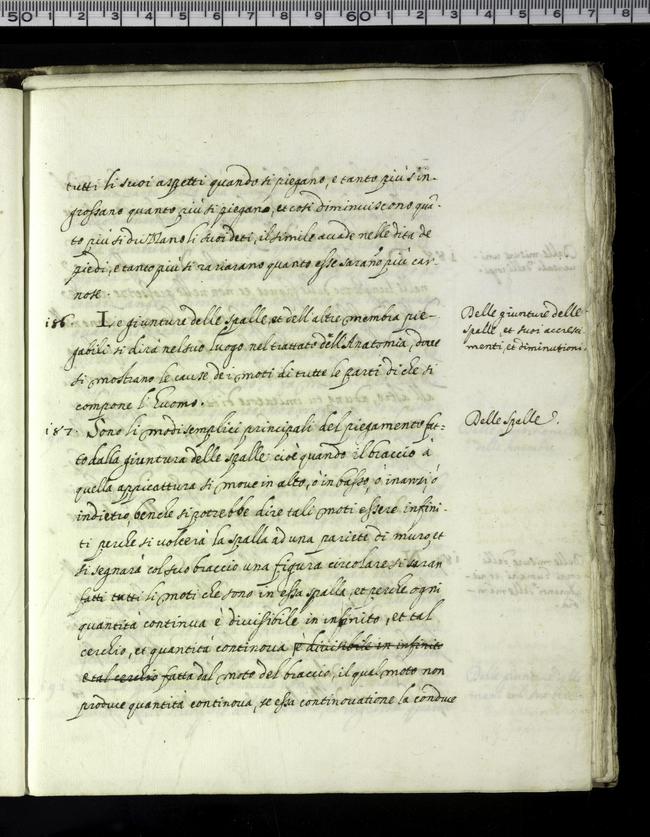 tutti li suoi aspetti quando si piegano, e tanto più s'in-
grossano quanto più si piegano, et così diminuiscono quã-
to più si drizzano li suoi deti, il simile accade nelle dita de
piedi, e tanto più si variarano quanto esse sarano più car-
nose.
186. Le giunture delle spalle, et dell'altre membra pie-
gabili si dirà nel suo luogo nel trattato dell'Anatomia, dove
si mostrano le cause dei moti di tutte le parti di che si
compone l'huomo.
Delle giunture delle
spalle, et suoi accresci
menti, et diminutioni.
187. Sono li modi semplici principali del piegamento fat-
to dalla giuntura delle spalle cioè quando il braccio à
quella appiccattura si move in alto, ò in basso, ò inanzi ò
indietro, benche si potrebbe dire tali moti essere infini-
ti perche si volterà la spalla ad una pariete di muro, et
si segnarà col suo braccio una figura circolare si saran
fatti tutti li moti che sono in essa spalla, et perche ogni
quantità continua è divisibile in infinito, et tal
cerchio, et quantità continova è divisibile in infinito
e tal cerchio fatta dal moto del braccio, il qual moto non
produce quantità continova, se essa continovatione la conduce
Delle Spalle.